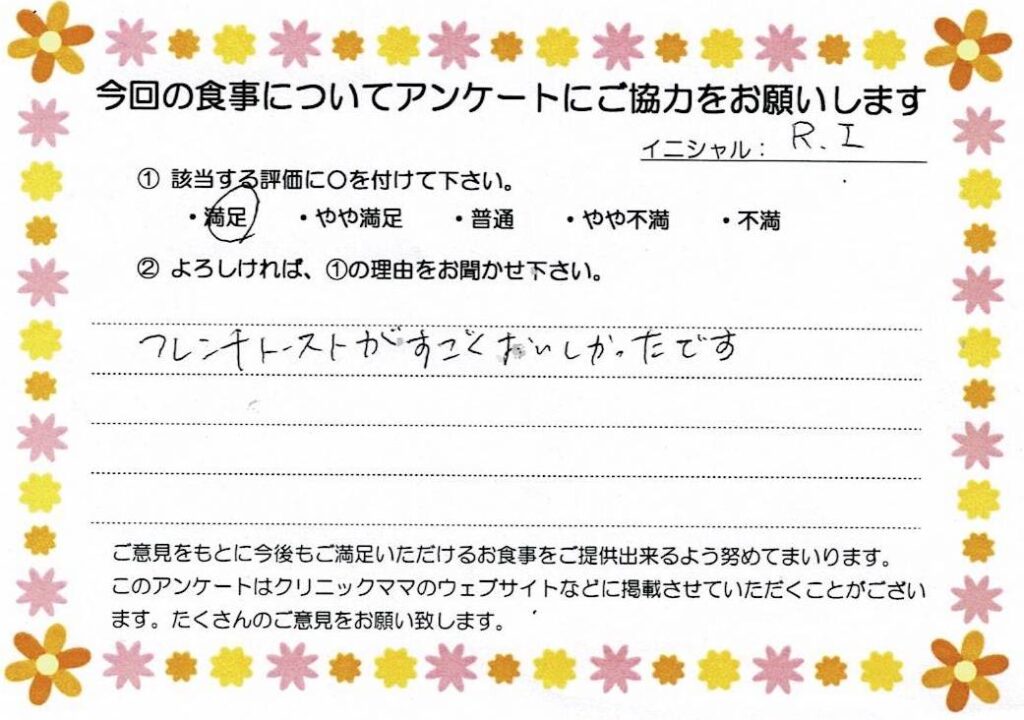 今回の食事についてアンケートにご協力をお願いします
イニシャル： R.I
① 該当する評価に〇を付けて下さい。
・満足 ・やや満足 ・普通 ・やや不満 ・不満
② よろしければ、①の理由をお聞かせ下さい。
フレンチトーストがすごくおいしかったです
ご意見をもとに今後もご満足いただけるお食事をご提供出来るよう努めてまいります。
このアンケートはクリニックママのウェブサイトなどに掲載させていただくことがござい
ます。たくさんのご意見をお願い致します。